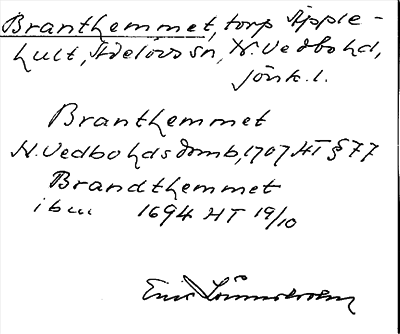 Branthemmet, torp Äpple-
hult, Adelövs sn, N. Vedbo hd,
Jönk. l.
Branthemmet
N. Vedbo hds domb, 1707 HT § 77
Brandthemmet
ibm 1694 HT 19/10